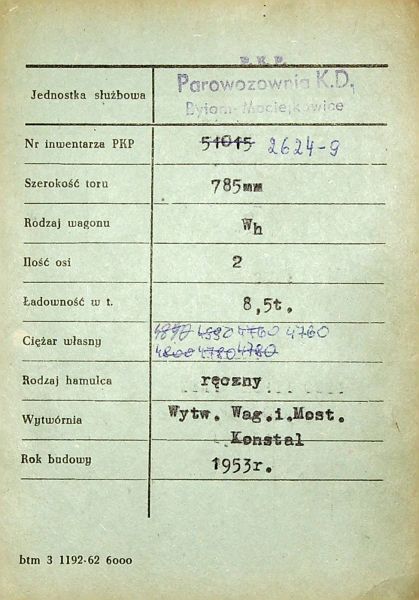 P.K.P.
Jednostka służbowa Parowozownia K.D.
Bytom-Maciejkowice
Nr inwentarza PKP 51015 2624-9
Szerokość toru 785mm
Rodzaj wagonu Wh
Ilość osi 2
Ładowność w t. 8,5t.
Ciężar własny 4890 4760 4760
4800 4780 4780
Rodzaj hamulca ręczny
Wytwórnia Wytw. Wag.i.Most.
Konstal
Rok budowy 1953r.
btm 3 1192-62 6000